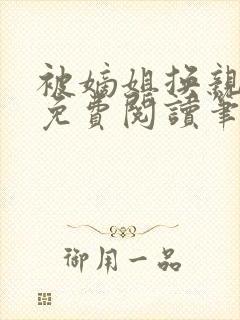 被嫡姐换親
免費閱讀筆
御用一品